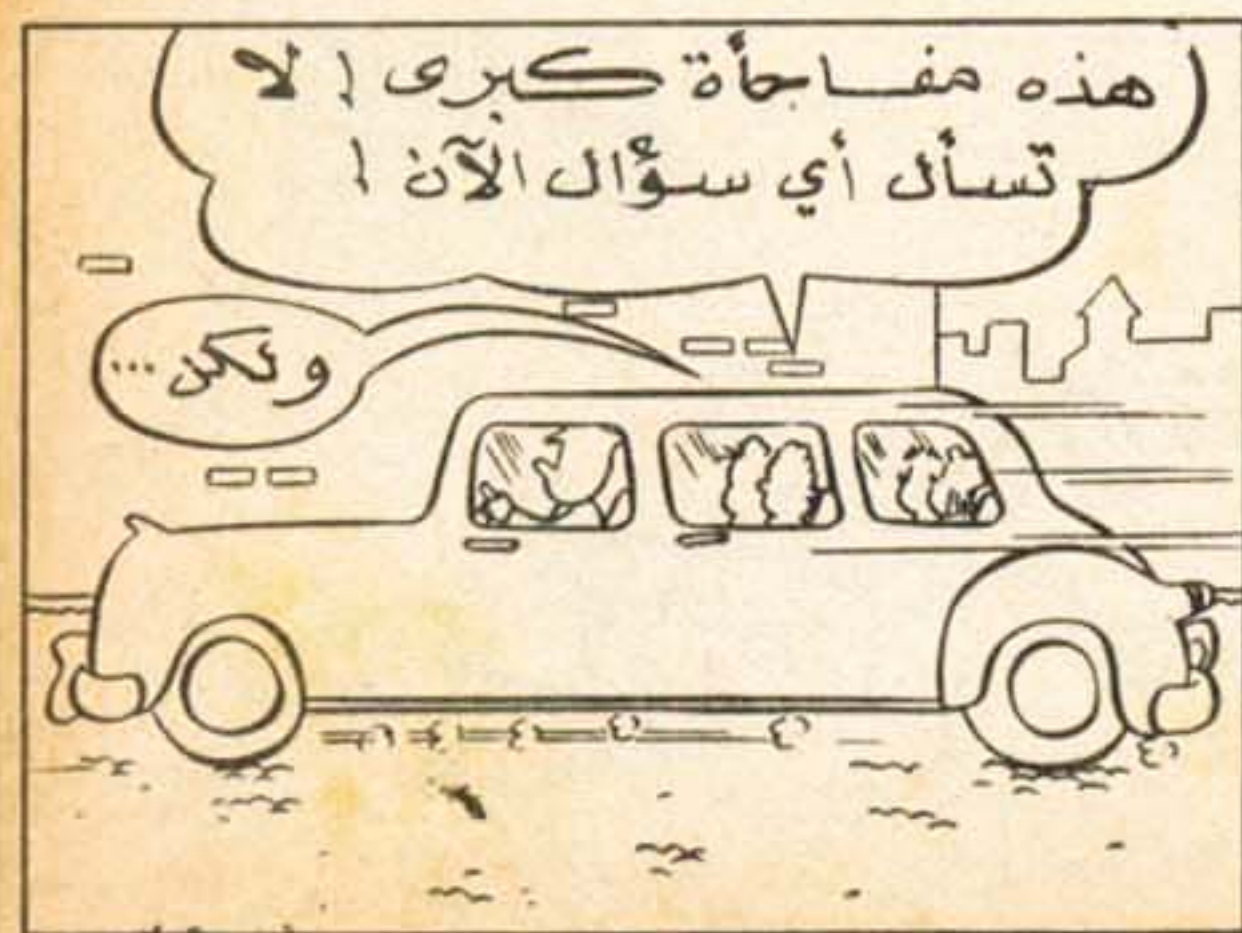 هذه مفاجأة كبرى ! لا
تسأل أي سؤال الآن !
ولكن ...